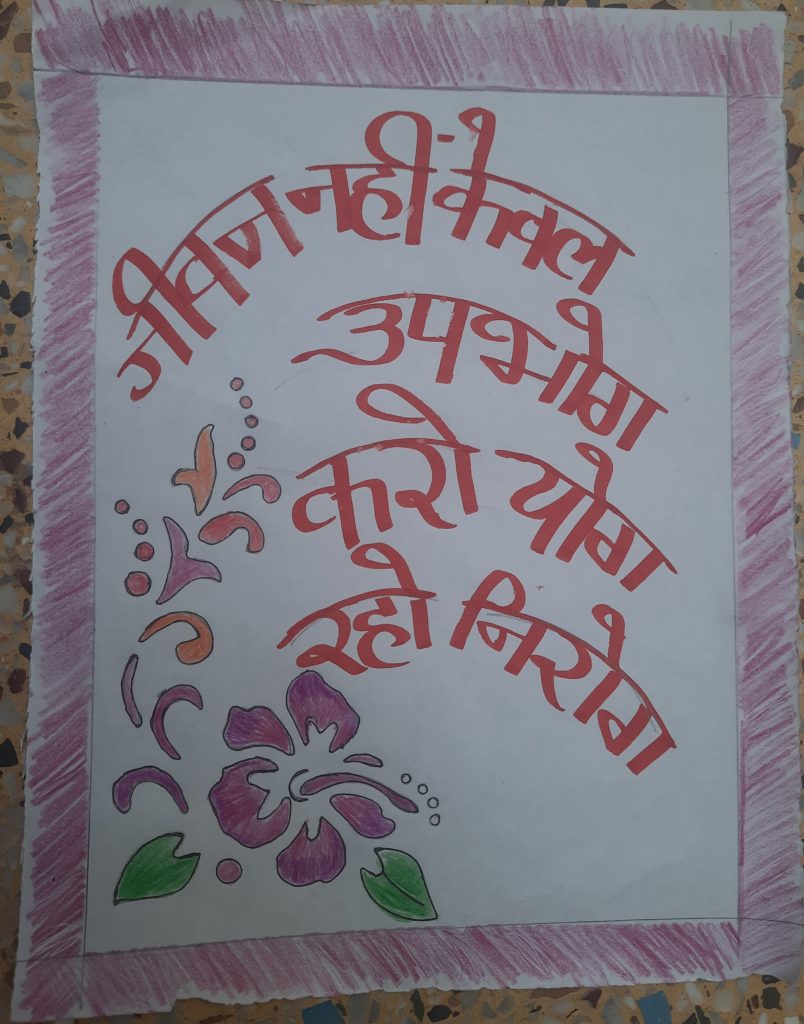 जीवन नहीं केवल
उपभोग
करो योग
रहो निरोग